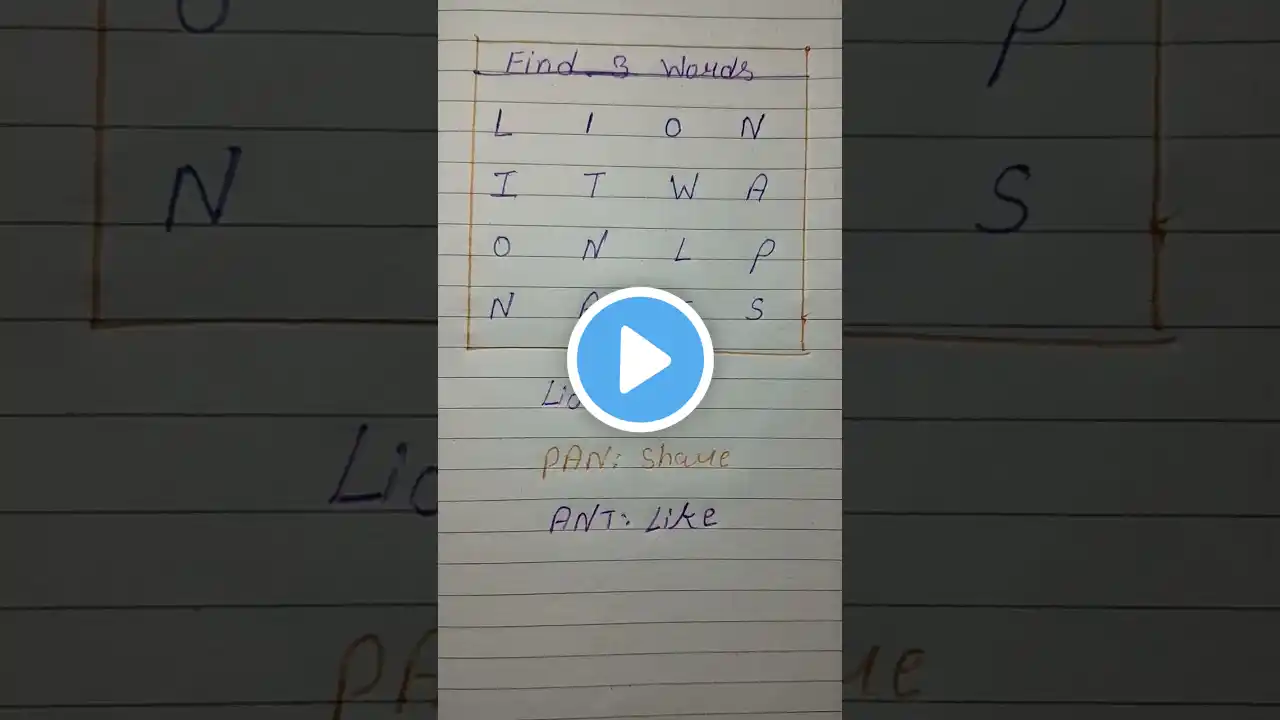 Find 3 Words
L I O N
I T W A
O N L P
N S
PAN: Shave
ANT: Like